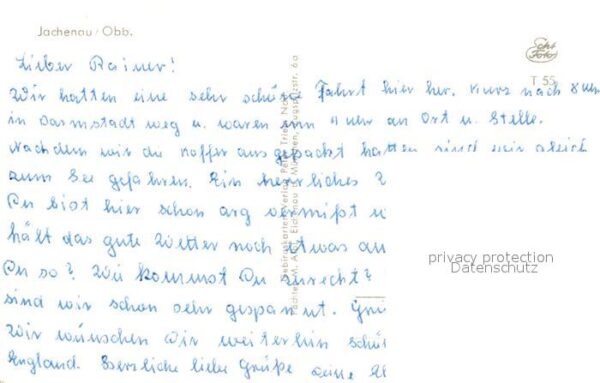 Jachenau / Obb.
Echt Foto
T 55
Lieber Rainer!
Wir hatten eine sehr schöne Fahrt hier her. Kurz nach 8 Uhr
in Darmstadt weg u. waren um 4 Uhr an Ort u. Stelle.
Nachdem wir die Koffer ausgepackt hatten sind wir gleich
zum See gefahren. Ein herrliches
Du bist hier schon arg vermißt
hält das gute Wetter noch etwas an
privacy protection
Datenschutz
Du so? Wie kommst Du zurecht?
sind wir schon sehr gespannt.
Wir wünschen Dir weiterhin
England. Herzliche liebe Grüße Deine
Gebirgskarten Verlag